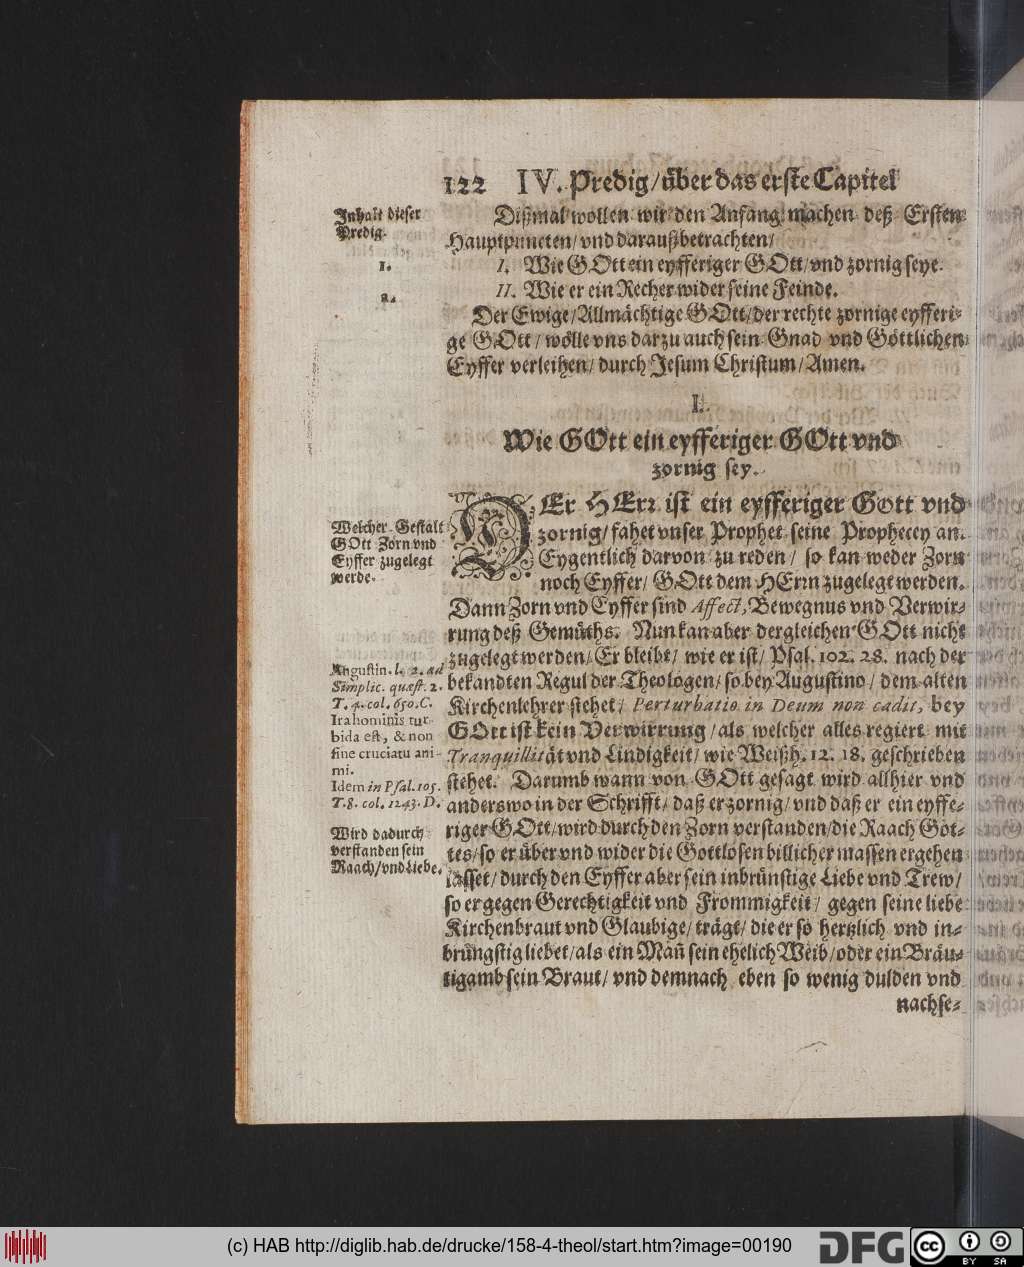 122 IV. Predig/über das erste Capitel
Inhalt dieser
Predig.
1.
2.
Dißmal wollen wir den Anfang machen deß Ersten
Hauptpuncten/ vnd darauß betrachten/
I. Wie GOtt ein eyfferiger GOtt/ vnd zornig seye.
II. Wie er ein Recher wider seine Feinde.
Der Ewige/ Allmächtige GOtt/ der rechte zornige eyfferi-
ge GOtt/ wölle vns darzu auch sein Gnad vnd Göttlichen
Eyffer verleihen/ durch Jesum Christum/ Amen.
I.
Wie GOtt ein eyfferiger GOtt vnd
zornig sey.
Welcher Gestalt
GOtt Zorn vnd
Eyffer zugelegt
werde.
DEr HErr ist ein eyfferiger Gott vnd
zornig/ fahet vnser Prophet seine Prophecey an.
Eygentlich darvon zu reden/ so kan weder Zorn
noch Eyffer/ GOtt dem HErrn zugelegt werden.
Dann Zorn vnd Eyffer sind Affect, Bewegnus vnd Verwir-
rung deß Gemüths. Nun kan aber dergleichen GOtt nicht
zugelegt werden/ Er bleibt/ wie er ist/ Psal. 102. 28. nach der
bekandten Regul der Theologen/ so bey Augustino/ dem alten
Kirchenlehrer stehet/ Perturbatio in Deum non cadit, bey
GOtt ist kein Verwirrung/ als welcher alles regiert mit
Tranquillität vnd Lindigkeit/ wie Weißh. 12. 18. geschrieben
stehet. Darumb wann von GOtt gesagt wird allhier vnd
anderswo in der Schrifft/ daß er zornig/ vnd daß er ein eyffe-
riger GOtt/ wird durch den Zorn verstanden/ die Raach Got-
tes/ so er über vnd wider die Gottlosen billicher massen ergehen
lässet/ durch den Eyffer aber sein inbrünstige Liebe vnd Trew/
so er gegen Gerechtigkeit vnd Frommigkeit/ gegen seine liebe
Kirchenbraut vnd Glaubige/ trägt/ die er so hertzlich vnd in-
brüngstig liebet/ als ein Mañ sein ehelich Weib/ oder ein Bräu-
tigamb sein Braut/ vnd demnach eben so wenig dulden vnd
nachse-
Augustin. l. 2. ad
Simplic. quæst. 2.
T. 4. col. 650. C.
Ira hominis tur-
bida est, & non
sine cruciatu ani-
mi.
Idem in Psal. 105.
T. 8. col. 1243. D.
Wird dadurch
verstanden sein
Raach/ vnd Liebe.
(c) HAB http://diglib.hab.de/drucke/158-4-theol/start.htm?image=00190
DFG
cc BY SA